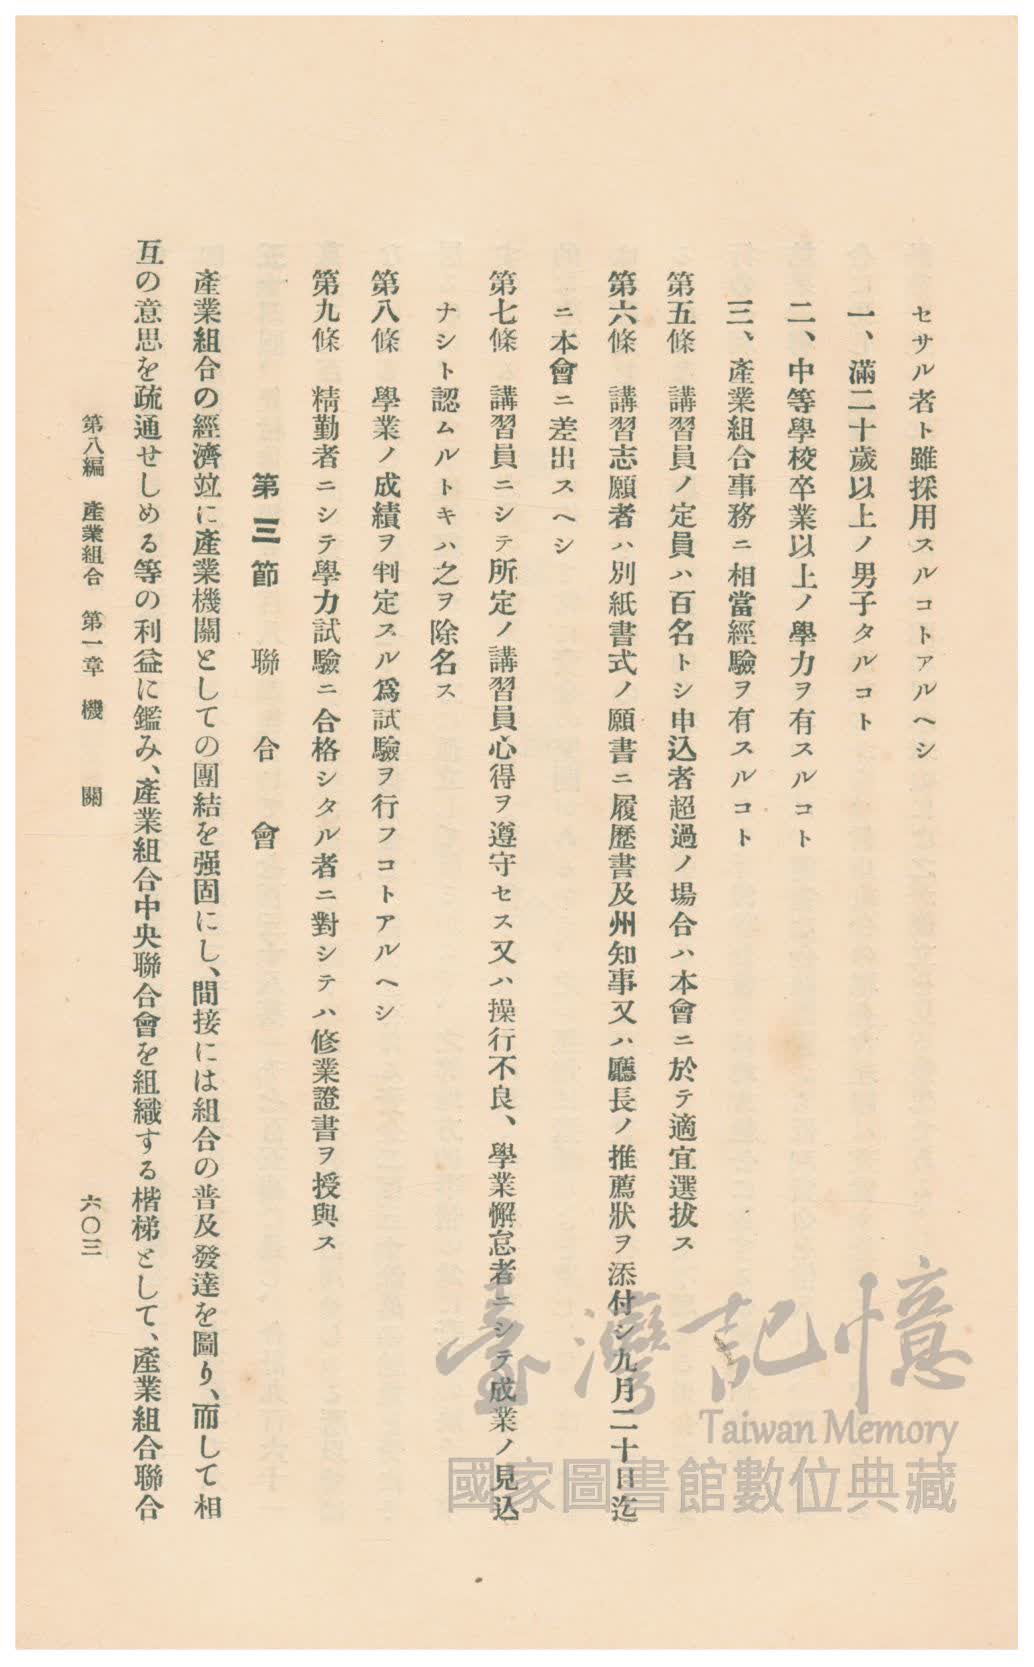 セサル者ト雖採用スルコトアルヘシ
一、滿二十歲以上ノ男子タルコト
二、中等學校卒業以上ノ學力ヲ有スルコト
三、產業組合事務ニ相當經驗ヲ有スルコト
第五條　講習員ノ定員ハ百名トシ申込者超過ノ場合ハ本會ニ於テ適宜選拔ス
第六條　講習志願者ハ別紙書式ノ願書ニ履歷書及州知事又ハ廳長ノ推薦狀ヲ添付シ九月二十日迄
ニ本會ニ差出スヘシ
第七條　講習員ニシテ所定ノ講習員心得ヲ遵守セス又ハ操行不良、學業懈怠者ニシテ成業ノ見込
ナシト認ムルトキハ之ヲ除名ス
第八條　學業ノ成績ヲ判定スル爲試驗ヲ行フコトアルヘシ
第九條　精勤者ニシテ學力試驗ニ合格シタル者ニ對シテハ修業證書ヲ授與ス
第三節　聯合會
產業組合の經濟竝に產業機關としての團結を强固にし、間接には組合の普及發達を圖り、而して相
互の意思を疏通せしめる等の利益に鑑み、產業組合中央聯合會を組織する楷梯として、產業組合聯合
第八編　產業組合　第一章　機關
六〇三
臺灣記憶
Taiwan Memory
國家圖書館數位典藏